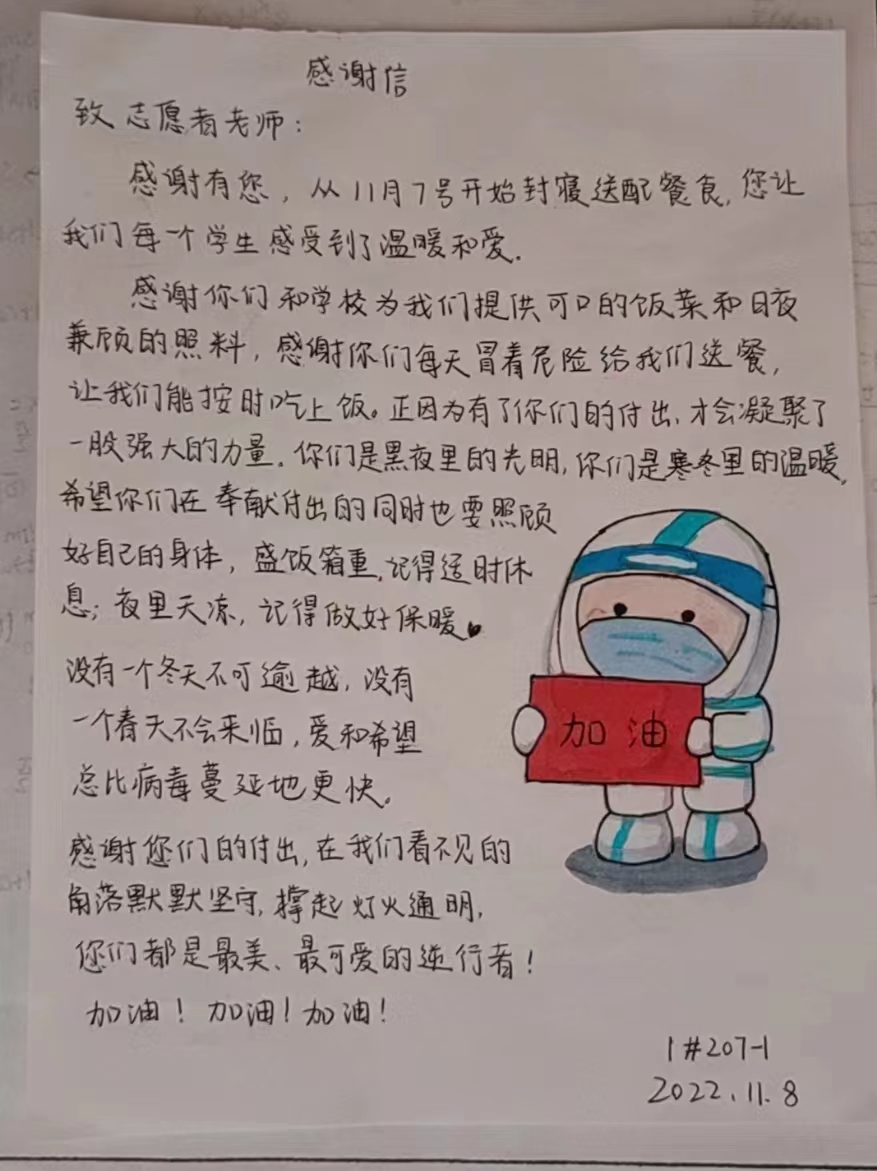 感谢信
致志愿者老师：
感谢有您，从11月7号开始封寝送配餐食，您让
我们每一个学生感受到了温暖和爱．
感谢你们和学校为我们提供可口的饭菜和日夜
兼顾的照料，感谢你们每天冒着危险给我们送餐，
让我们能按时吃上饭。正因为有了你们的付出，才会凝聚了
一股强大的力量．你们是黑夜里的光明，你们是寒冬里的温暖，
希望你们在奉献付出的同时也要照顾
好自己的身体，盛饭箱重，记得适时休
息；夜里天凉，记得做好保暖
没有一个冬天不可逾越，没有
一个春天不会来临，爱和希望
总比病毒蔓延地更快．
感谢您们的付出，在我们看不见的
角落默默坚守，撑起灯火通明，
您们都是最美、最可爱的逆行者！
加油！加油！加油！
加油
1#207-1
2022.11.8